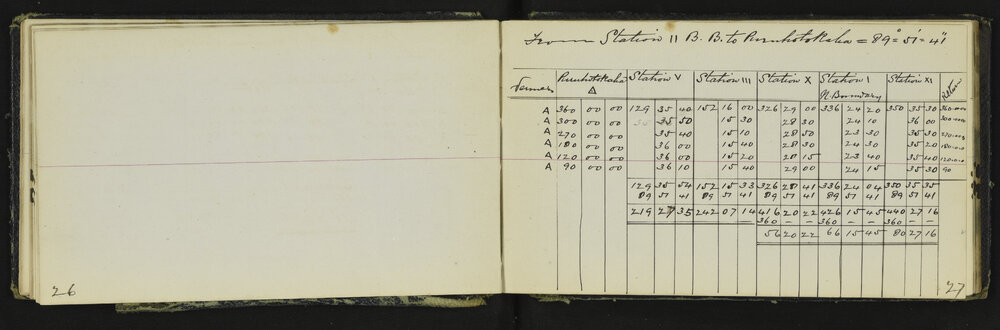 From Station II B. B. to Puruhotokaha = 89° 51' 41"
Vernier Puruhotokaha Δ Station V Station III Station X Station I N. Boundary Station XI
A 360 00 00 129 35 40 152 16 00 326 29 00 336 24 20 350 35 30 360.00.00
A 300 00 00 35 35 50 15 30 28 30 24 10 36 00 300.00.00
A 270 00 00 35 40 15 10 28 50 23 30 35 30 270.00.0
A 180 00 00 36 00 15 40 28 30 24 30 35 20 180.00.0
A 120 00 00 36 00 15 20 28 15 23 40 35 40 120.0.0
A 90 00 00 36 10 15 40 29 00 24 15 35 30 90
129 35 54 152 15 33 326 28 41 336 24 04 350 35 35
89 51 41 89 51 41 89 51 41 89 51 41 89 51 41
219 27 35 242 07 14 416 20 22 426 15 45 440 27 16
360 – – 360 – – 360 – –
56 20 22 66 15 45 80 27 16
26
27